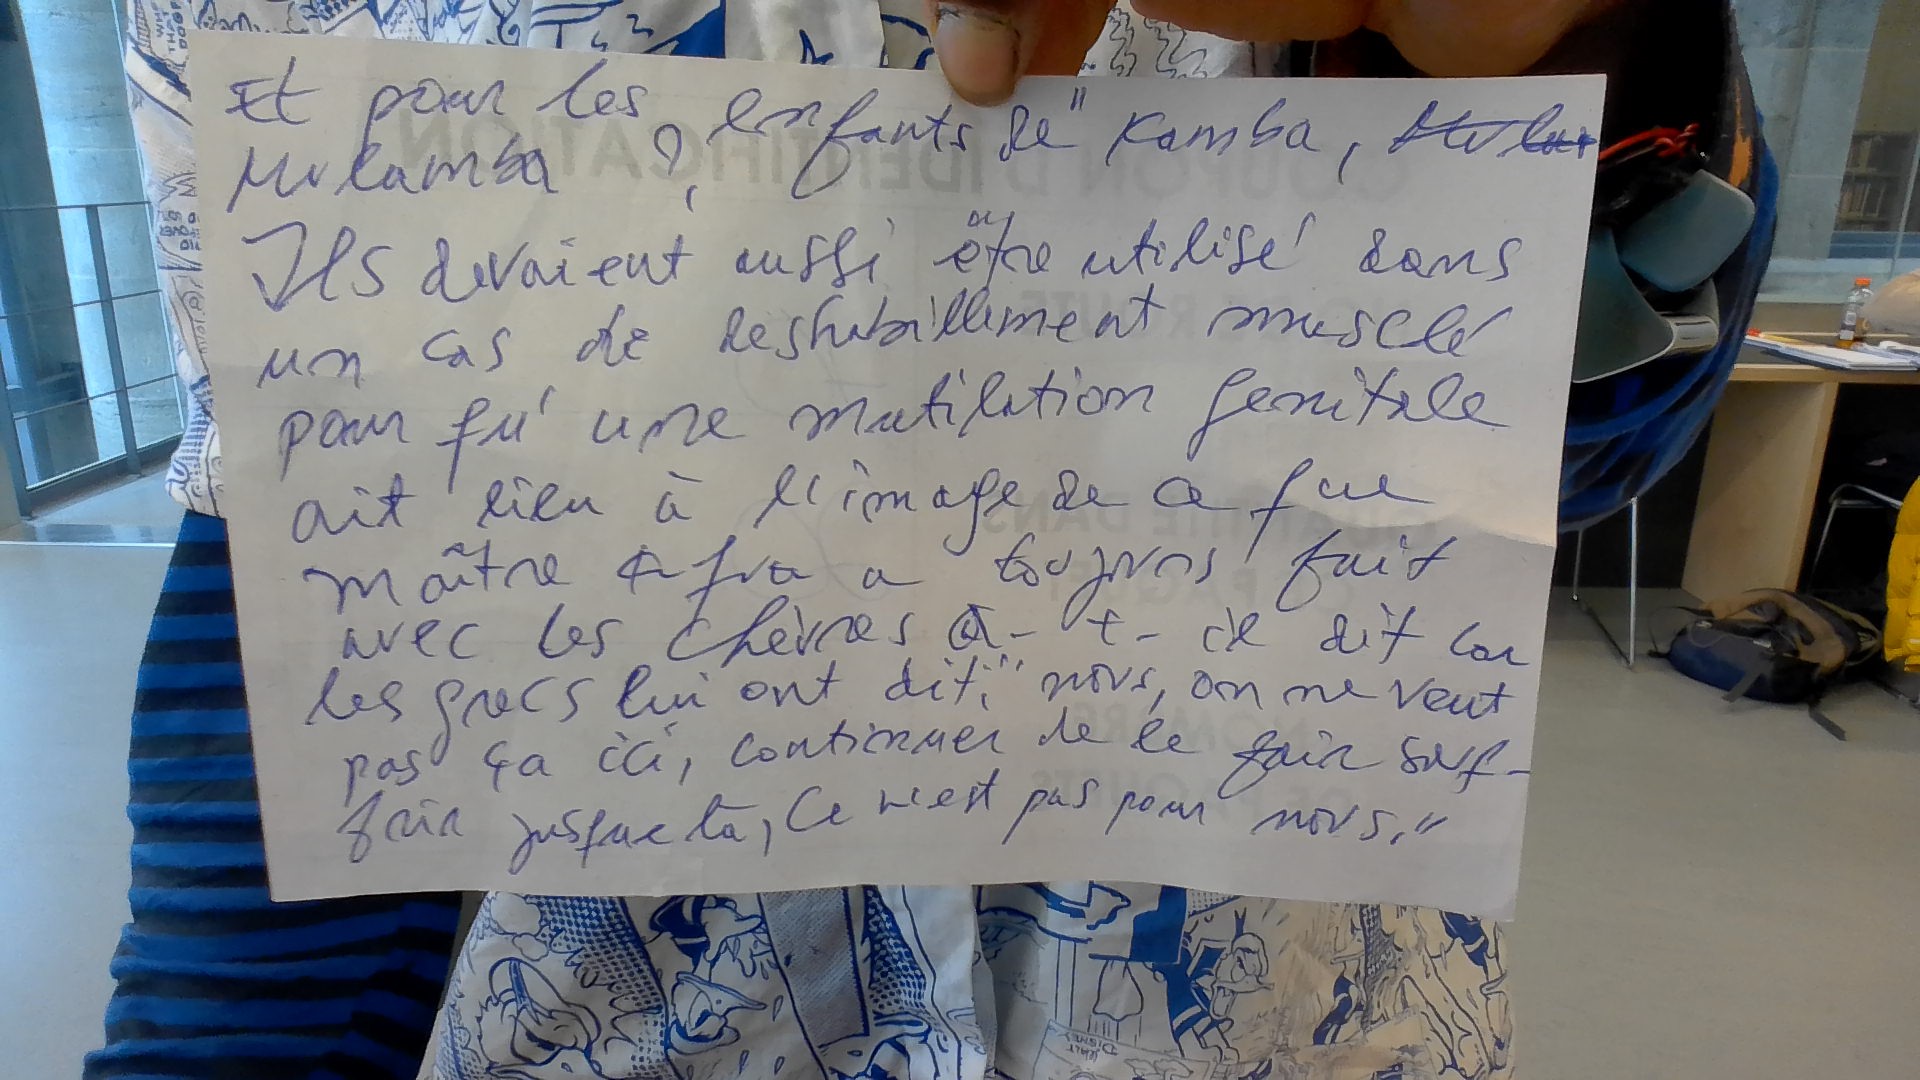 Et pour les enfants de " Kamba,
Mulamba ?,
Ils devaient aussi être utilisé dans
un cas de deshabillement musclé
pour qu'une mutilation genitale
ait lieu à l'image de ce que
maître a toujours fait
avec les chèvres a-t-il dit car
les grecs lui ont dit: " nous, on ne veut
pas ça ici, continuer de le fair souf-
frir jusque là, ce n'est pas pour nous."
COUPON D'IDENTIFICATION
WALT DISNEY